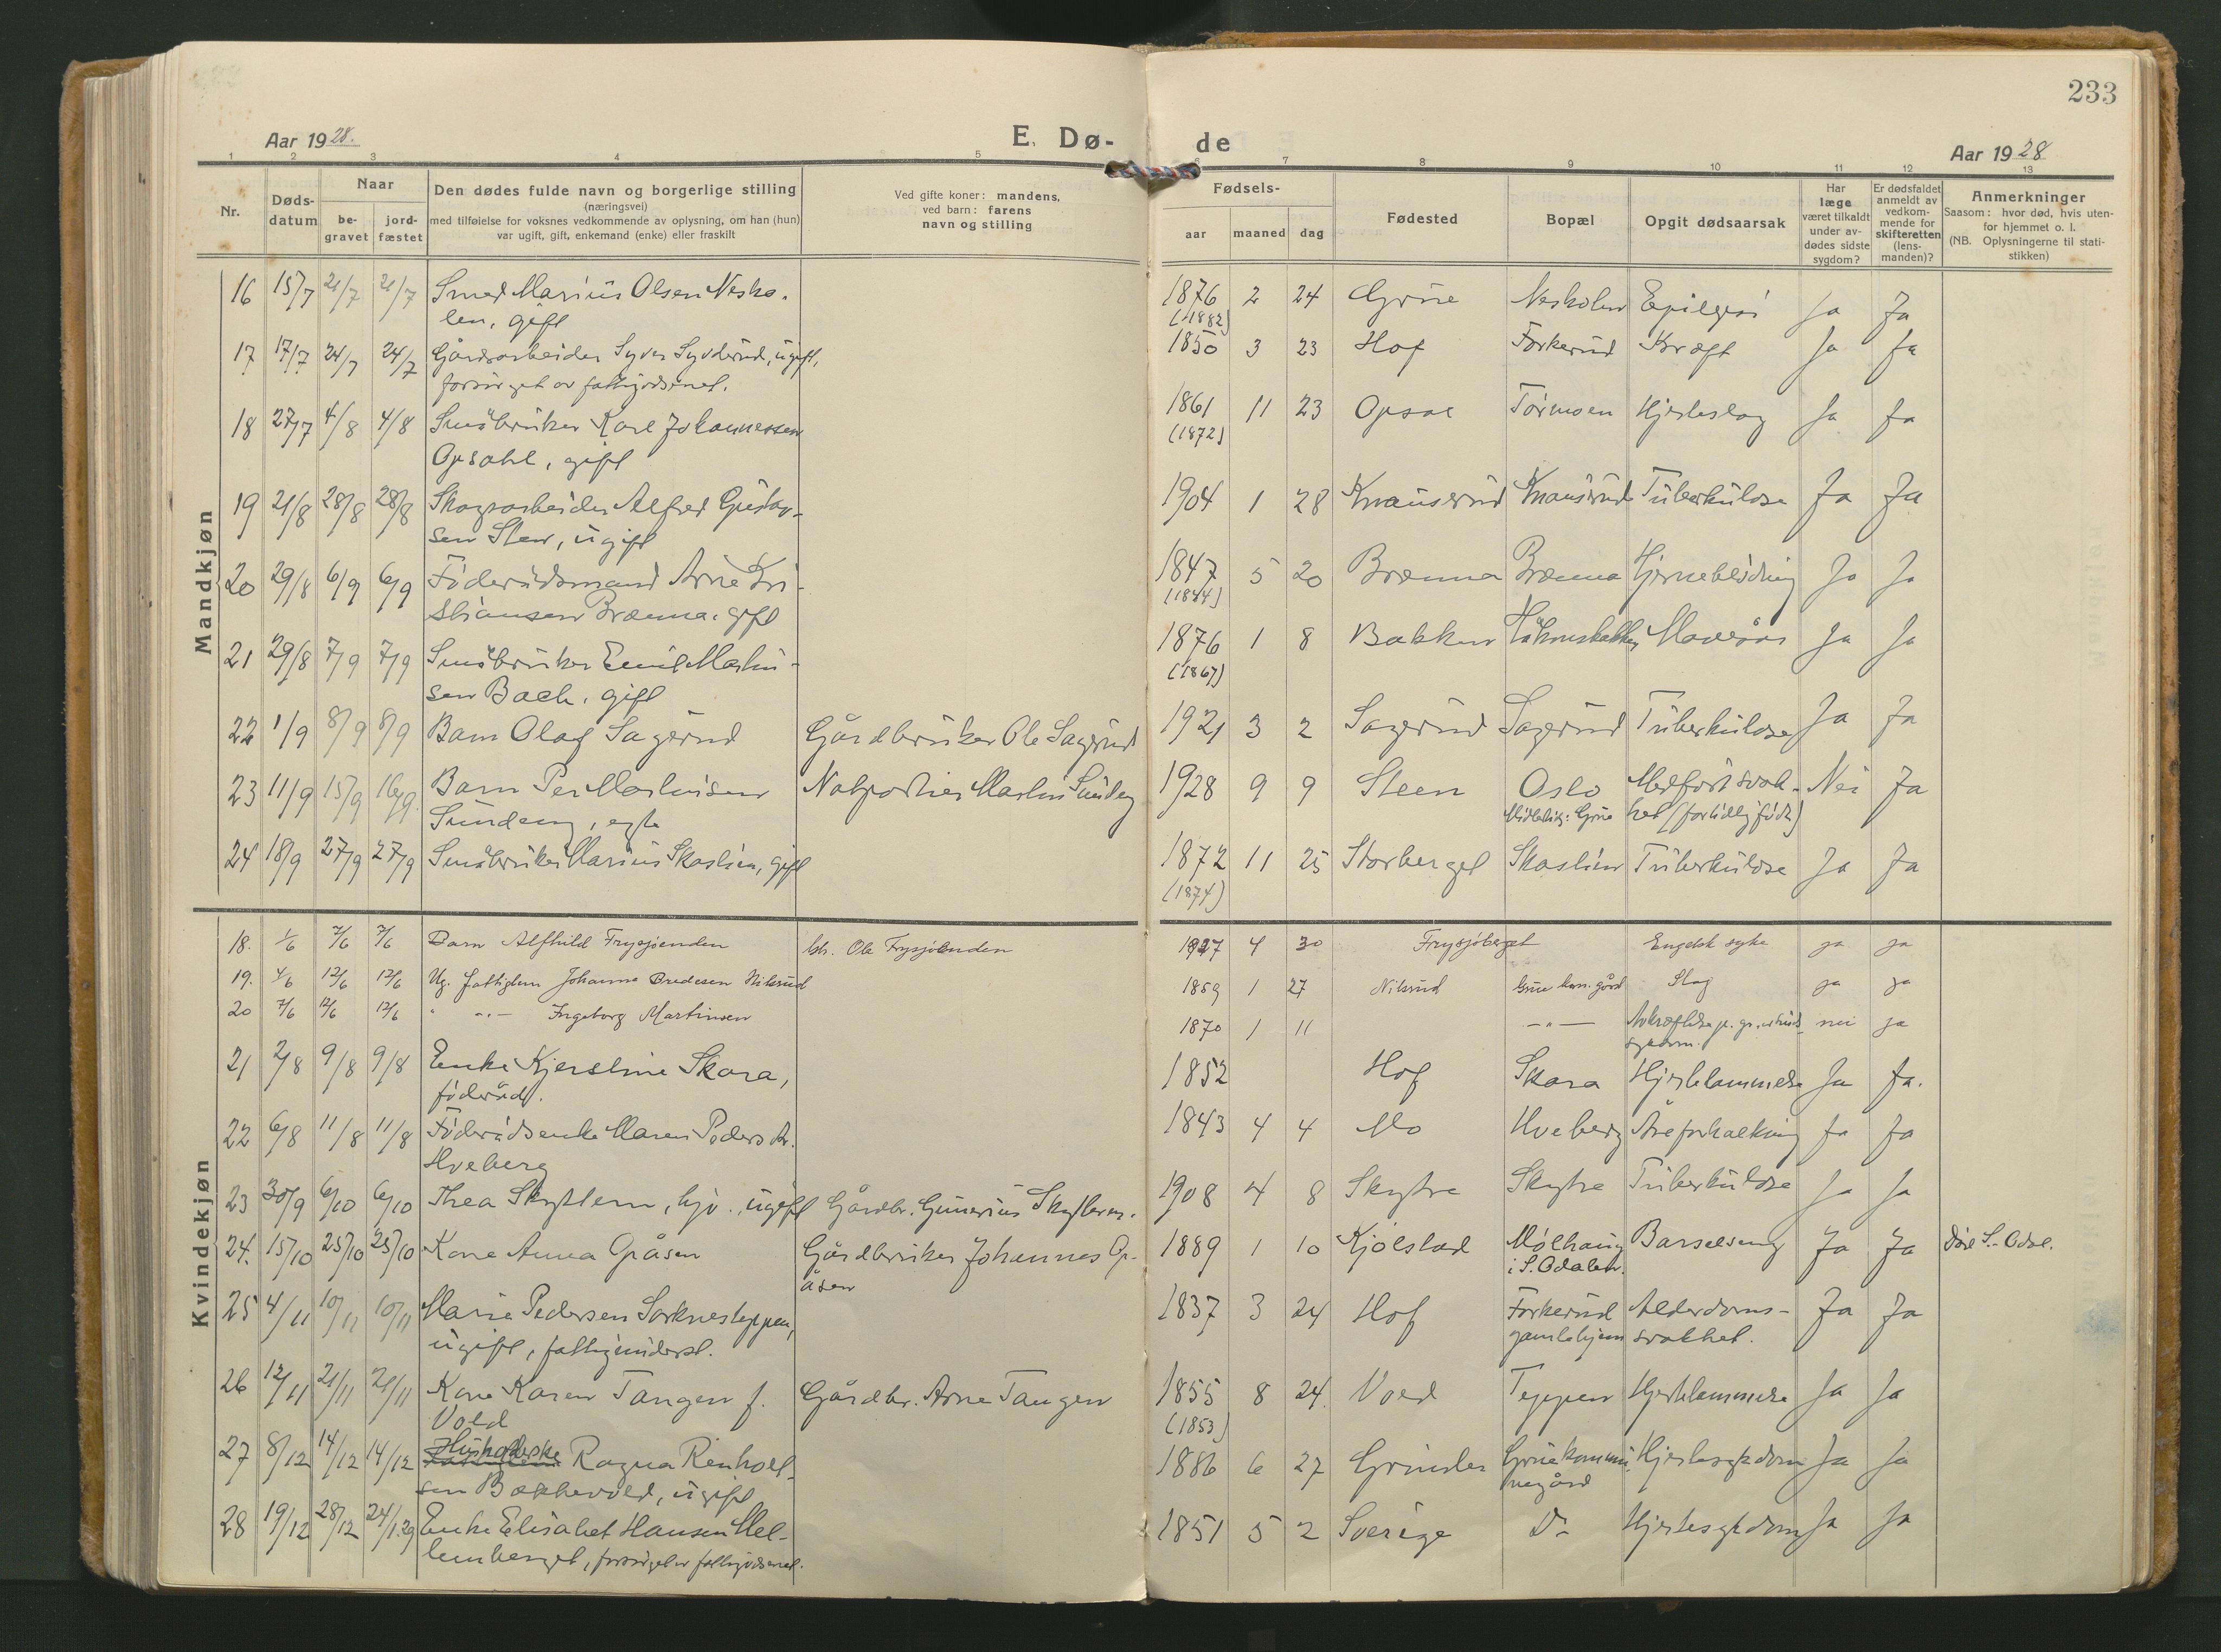 233
Aar 1928.
E. Dø-
de
Aar 1928
1 2 3 4 5 6 7 8 9 10 11 12 13
Nr.
Døds-
datum
Naar
be-
gravet
jord-
fæstet
Den dødes fulde navn og borgerlige stilling
(næringsvei)
med tilføielse for voksnes vedkommende av oplysning, om han (hun)
var ugift, gift, enkemand (enke) eller fraskilt
Ved gifte koner: mandens,
ved barn: farens
navn og stilling
Fødsels-
aar maaned dag
Fødested
Bopæl
Opgit dødsaarsak
Har
læge
været tilkaldt
under av-
dødes sidste
sygdom?
Er dødsfaldet
anmeldt av
vedkom-
mende for
skifteretten
(lens-
manden)?
Anmerkninger
Saasom: hvor død, hvis uten-
for hjemmet o. l.
(NB. Oplysningerne til stati-
stikken)
Mandkjøn
16 15/7 21/7 21/7 Smed Marius Olsen Nesho- 1876 2 24 Grue Nesholen Epilepsi Ja Ja
len, gift (1882)
17 17/7 24/7 24/7 Gårdsarbeider Syver Syverud, ugift, 1850 3 23 Hof Forkerud Kræft Ja Ja
forsørget av fattigvæsenet.
18 27/7 4/8 4/8 Småbruker Karl Johannessen 1861 11 23 Opsal Tørmoen Hjerteslag Ja Ja
Opsahl, gift (1872)
19 21/8 28/8 28/8 Skogsarbeider Alfred Gustav- 1904 1 28 Knauserud Knauserud Tuberkulose Ja Ja
sen Sten, ugift
20 29/8 6/9 6/9 Föderådsmand Arne Kri- 1847 5 20 Brænna Brænna Hjerneblödning Ja Ja
stiansen Brænna, gift (1844)
21 29/8 7/9 7/9 Småbruker Emil Martin- 1876 1 8 Bakken Ja Ja
sen Bach, gift (1867)
22 1/9 8/9 8/9 Barn Olaf Sagerud Gårdbruker Ole Sagerud 1921 3 2 Sagerud Sagerud Tuberkulose Ja Ja
23 11/9 15/9 16/9. Barn Per Martinsen Natportier Martin Sundeng 1928 9 9 Steen Oslo Medfört svak- Nei Ja
Sundeng, egte Midlertidig: Grue het (for tidlig födt)
24 18/9 27/9 27/9 Småbruker Marius Skaslien, gift 1872 11 25 Storberget Skaslien Tuberkulose Ja Ja
(1874)
Kvindekjøn
18. 1/6 7/6 7/6 Barn Alfhild Frysjøenden br. Ole Frysjøenden 1927 4 30 Frysjøberget Engelsk syke ja ja
19. 4/6 12/6 12/6 Ug. fattiglem Johanne Bredesen Nilsrud 1859 1 27 Nilsrud Grue kom. gård Slag ja ja
20 7/6 12/6 12/6 " -"- Ingeborg Martinsen 1870 1 11 -"- nei ja
21 2/8 9/8 9/8 Enke Kjerstine Skara, 1852 Hof Skara Hjertelammelse Ja Ja.
föderåd.
22 6/8 11/8 11/8 Föderådsenke Maren Pedersdtr. 1843 4 4 Mo Hveberg Åreforkalkning Ja Ja
Hveberg
23 30/9 6/10 6/10 Thea Skyttern, hjv., ugift Gårdbr. Gunerius Skyttern. 1908 4 8 Skytre Skytre Tuberkulose Ja Ja
24. 15/10 25/10 25/10 Kone Anna Opåsen Gårdbruker Johannes Op- 1889 1 10 Kjölstad Mölhaug Barselseng Ja Ja död S.-Odal.
åsen i S. Odalen.
25 4/11 10/11 10/11 Marie Pedersen Sorknesteppen, 1837 3 24 Hof Forkerud Alderdoms- Ja Ja
ugift, fattigunderst. gamlehjem svakhet.
26 12/11 21/11 21/11 Kone Karen Tangen f. Gårdbr. Arne Tangen 1855 8 24 Vold Teppen Hjertelammelse Ja Ja
Vold (1853)
27 8/12 14/12 14/12 Husholderske Ragna Renholt- 1886 6 27 Grinder Grue kommu- Hjertesykdom Ja Ja
sen Bækkevold, ugift negård
28 19/12 28/12 24/1.29 Enke Elisabet Hansen Mel- 1851 5 2 Sverige Do Hjertesykdom Ja Ja
lemberget, forsørget av fattigvæsenet.